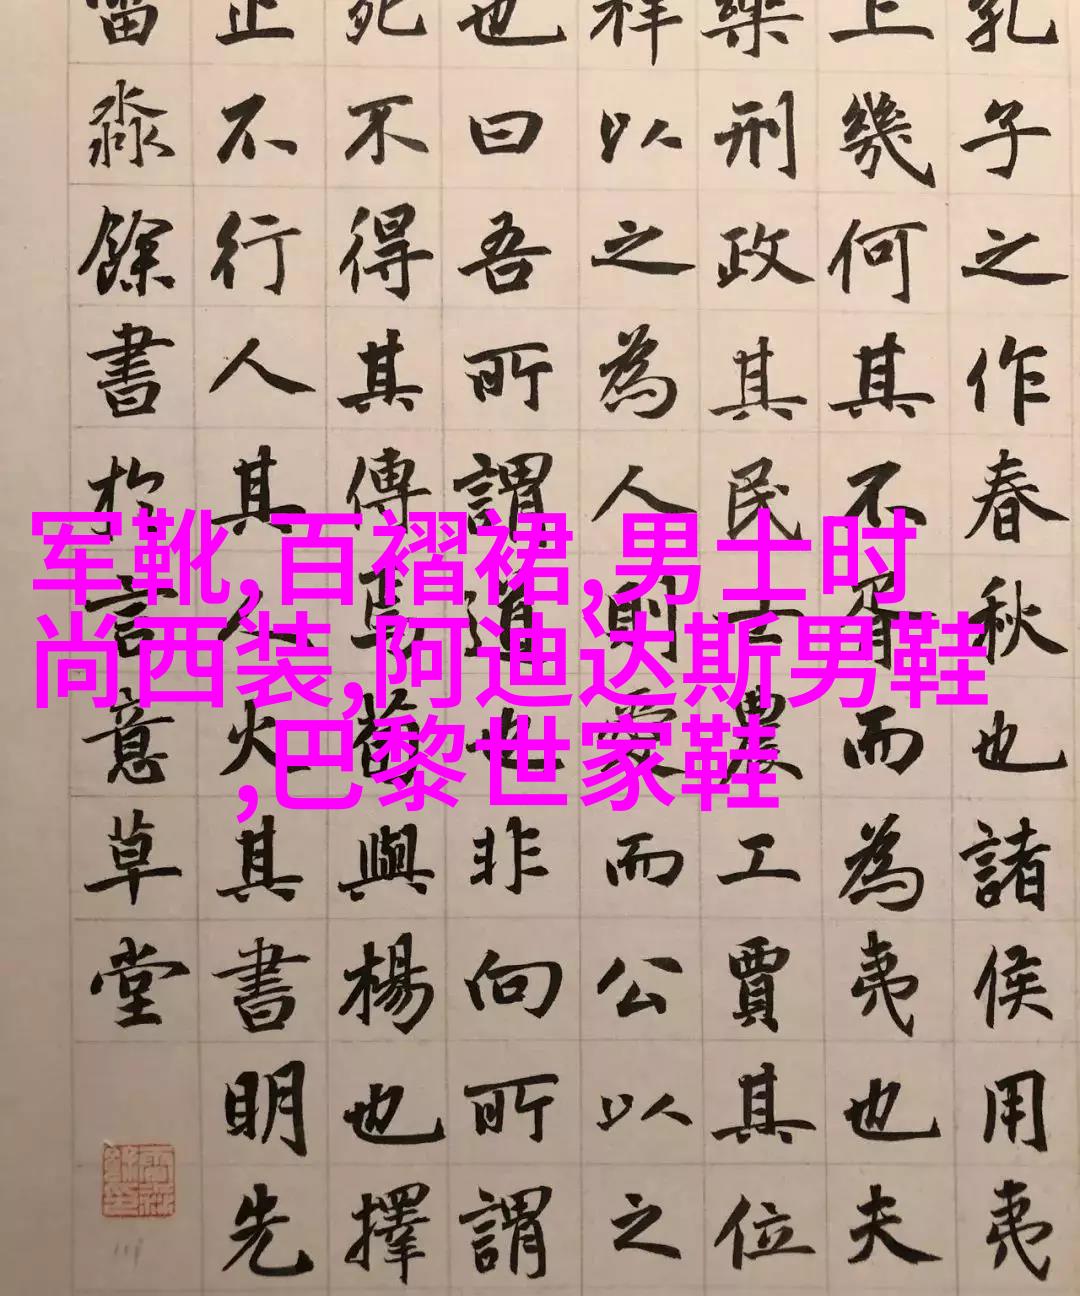 军靴,百褶裙,男士时
尚西装,阿迪达斯男鞋
,巴黎世家鞋
孔子之作春秋也諸侯用夷
上幾何其不胥而為夷也夫
樂刑政其民士農工賈其位
祥以之為人則愛而公以之
也曰吾所謂道也非向所謂
死不得其傳焉荀與楊也擇
止不行人其人火其書明先
淼餘書於言意草堂